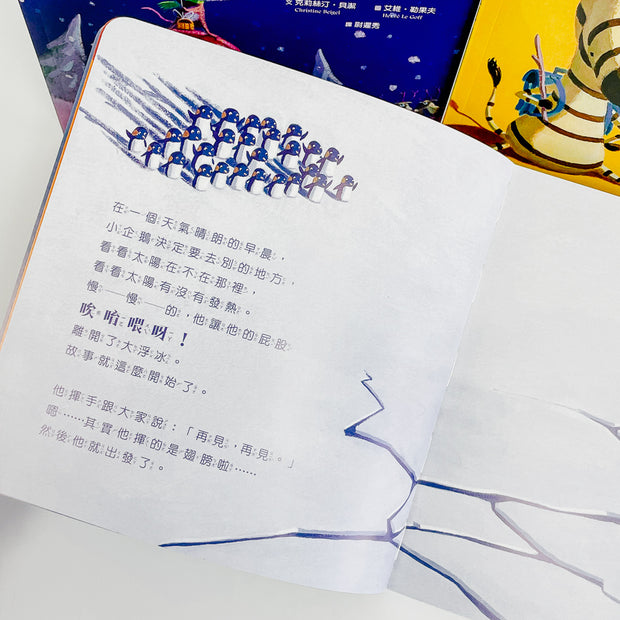 文 克莉絲汀・貝潔
Christine Beigel
圖 艾維・勒果夫
Hervé Le Goff
譯 尉遲秀
在一個天氣晴朗的早晨，
小企鵝決定要去別的地方，
看看太陽在不在那裡，
看看太陽有沒有發熱。
慢——慢——的，他讓他的屁股
唉唷喂呀！
離開了大浮冰。
故事就這麼開始了。
他揮手跟大家說：「再見，再見。」
嗯……其實他揮的是翅膀啦……
然後他就出發了。